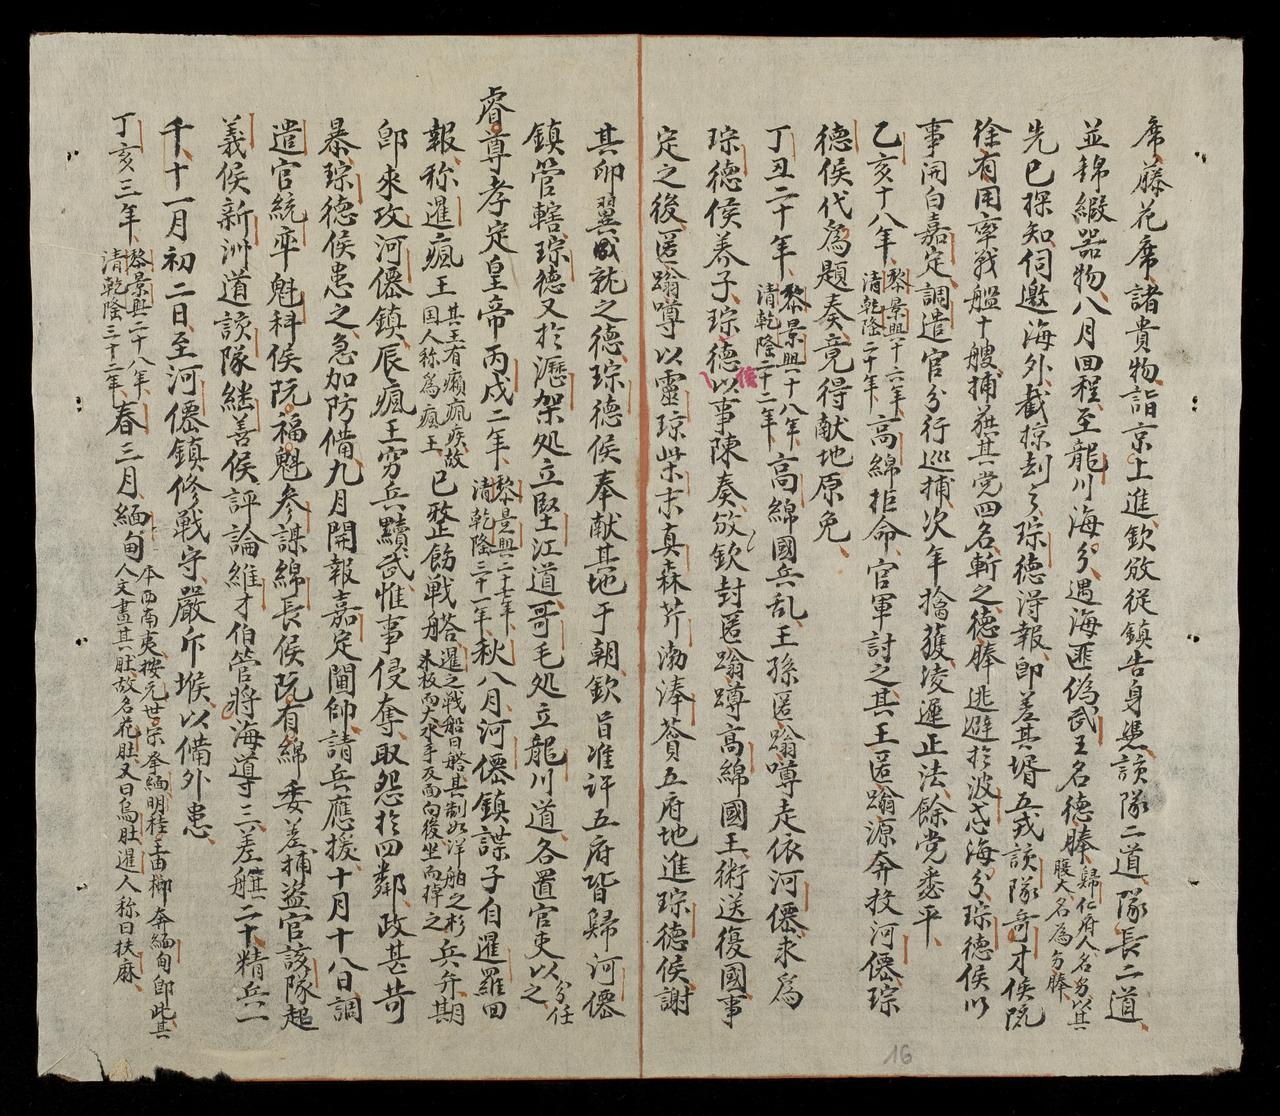 席藤花席諸貴物詣京上進欽攽從鎮告身憑該隊二道隊長二道
並錦緞器物八月回程至龍川海分遇海匪偽武王名德 歸仁府人名旁以其腹大名為旁
先已探知伺邀海外截掠刦之琮德淂報即差其壻五戎該隊奇才侯阮
徐有用率戰艦十艘捕獲其党四名斬之德 逃避於波忒海分琮德侯以
事開白嘉定調遣官分行巡捕次年擒獲凌遲正法餘党悉平
乙亥十八年黎景興十六年清乾隆二十年高綿拒命官軍討之其王匿螉源奔投河僊琮
德侯代為題奏竟得献地原免
丁丑二十年黎景興十八年清乾隆二十二年高綿國兵乱王孫匿螉噂走依河僊求為
琮德侯養子琮德侯以事陳奏攽欽封匿螉蹲高綿國王衛送復國事
定之後匿螉噂以靈琼柴末真森芹渤湊賁五府地進琮德侯謝
其卵翼成就之德琮德侯奉献其地于朝欽旨准許五府皆歸河僊
鎮管轄琮德又於瀝架処立堅江道哥毛処立龍川道各置官吏以分任之
睿尊孝定皇帝丙戌二年黎景興二十七年清乾隆三十一年秋八月河僊鎮諜子自暹羅回
報称暹瘋王其王有癩瘋疾故国人称為瘋王已整飭戦艚暹之戦船曰艚其制如洋舶之杉木板而大水手反面向後坐而棹之兵弁期
即來攻河僊鎮辰瘋王穷兵黷武惟事侵奪取怨於四鄰政甚苛
暴琮德侯患之急加防備九月開報嘉定閫帥請兵應援十月十八日調
遣官統率魁科侯阮福魁參謀綿長侯阮有綿委差捕盜官該隊起
義侯新洲道該隊継善侯評論維才伯管將海導三差艦二十精兵一
千十一月初二日至河僊鎮修戦守嚴斥堠以備外患
丁亥三年黎景興二十八年清乾隆三十二年春三月緬甸本西南夷按元世宗奉緬明桂王由榔奔緬甸即此其人文畫其肚故名花肚又曰烏肚暹人称曰扶麻
16